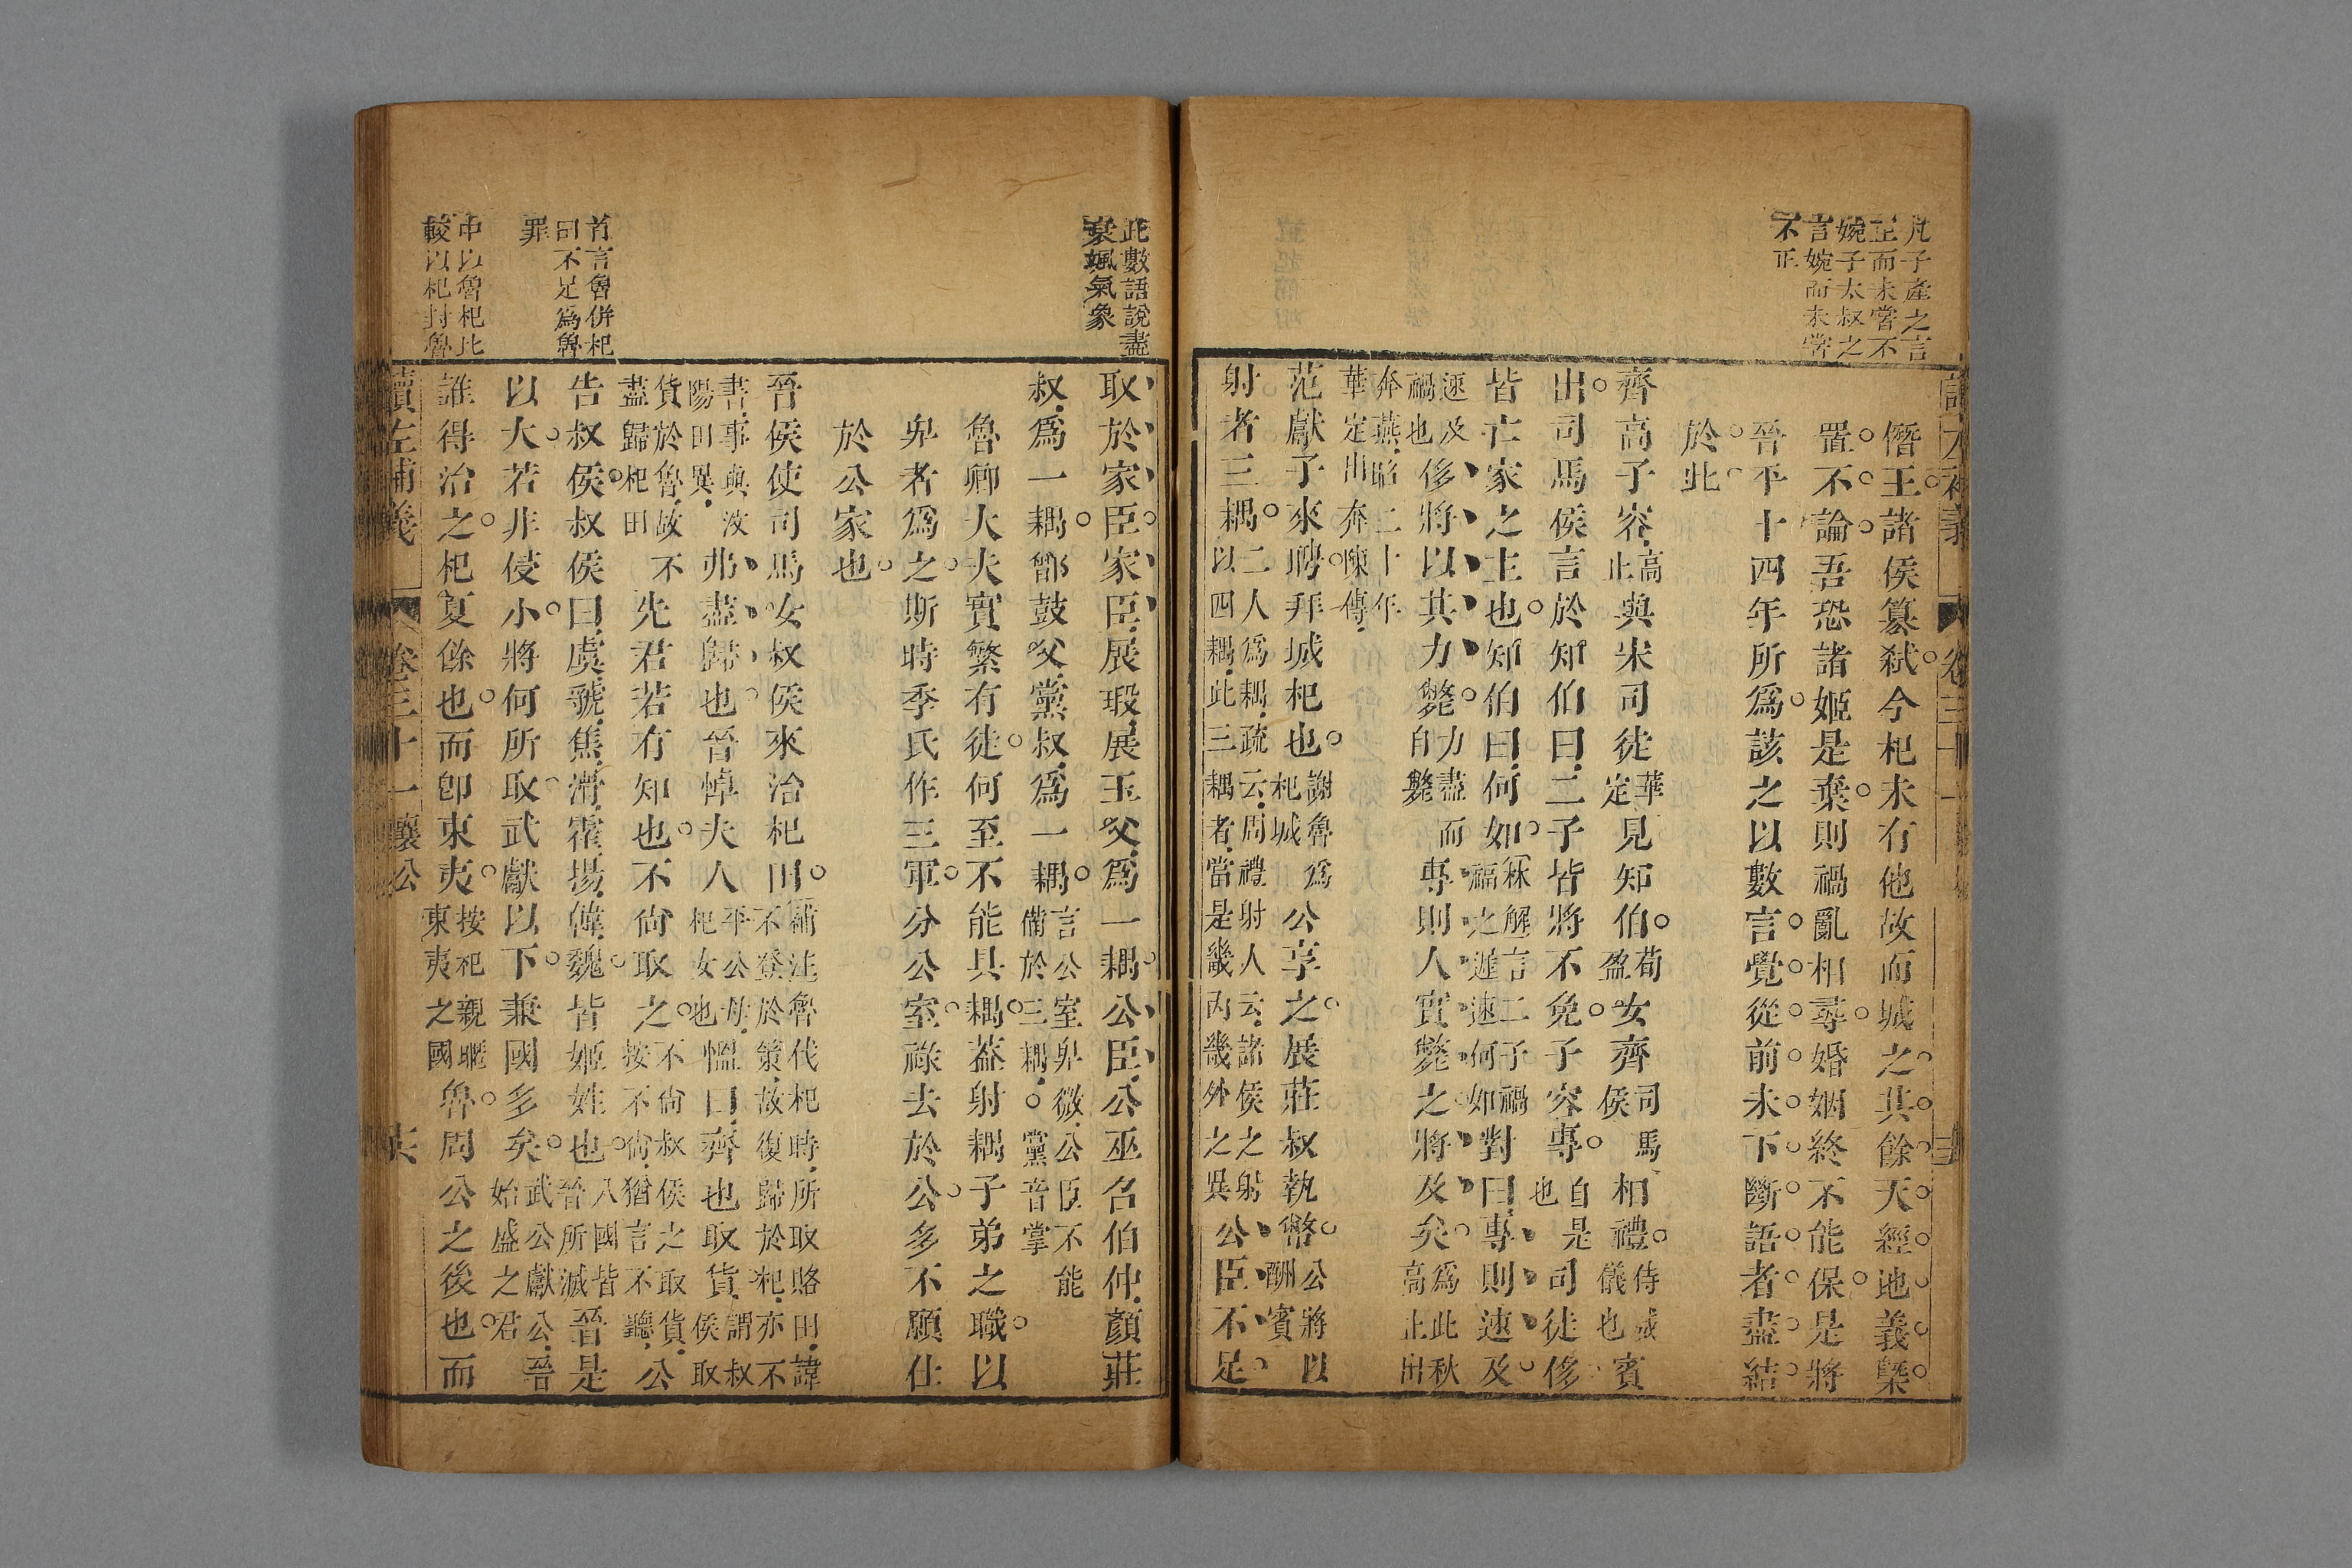 凡子產之言
正而未嘗不
婉子太叔之
言婉而未嘗
不正
僭王諸侯篡弒今杞未有他故而城之其餘天經地義槩
置不論吾恐諸姬是棄則禍亂相尋婚姻終不能保是將
晉平十四年所爲該之以數言覺從前未下斷語者盡結
於此
齊高子容高止與宋司徒華定見知伯荀盈女齊司馬侯相禮侍威儀也賓
出司馬侯言於知伯曰二子皆將不免子容專自是也司徒侈
皆亡家之主也知伯曰何如林解言二子禍福之遲速何如對曰專則速及
速及禍也侈將以其力斃力盡而自斃專則人實斃之將及矣爲此秋高止出
奔燕昭二十年華定出奔陳傳
范獻子來聘拜城杞也謝魯爲杞城公享之展莊叔執幣公將以酬賓
射者三耦二人爲耦疏云周禮射人云諸侯之射以四耦此三耦者當是畿內畿外之異公臣不足
此數語說盡
衰颯氣象
取於家臣家臣展瑕展玉父爲一耦公臣公巫召伯仲顏莊
叔爲一耦鄫鼓父黨叔爲一耦言公室卑微公臣不能備於三耦○黨音掌
魯卿大夫實繁有徒何至不能具耦葢射耦子弟之職以
卑者爲之斯時季氏作三軍分公室祿去於公多不願仕
於公家也
晉侯使司馬女叔侯來治杞田補注魯代杞時所取賂田諱不登於策故復歸於杞亦不
書事與汶陽田異弗盡歸也晉悼夫人平公母杞女也慍曰齊也取貨謂叔侯取
貨於魯故不盡歸杞田先君若有知也不尙取之不尙叔侯之取貨按不尙尙猶言不聽公
首言魯併杞
田不足爲魯
罪
告叔侯叔侯曰虞虢焦滑霍揚韓魏皆姬姓也八國皆晉所滅晉是
以大若非侵小將何所取武獻以下兼國多矣武公獻公晉始盛之君
中以魯杞比
較以杞封魯
誰得治之杞夏餘也而卽東夷按杞親暱東夷之國魯周公之後也而
讀左補義 卷三十一襄公